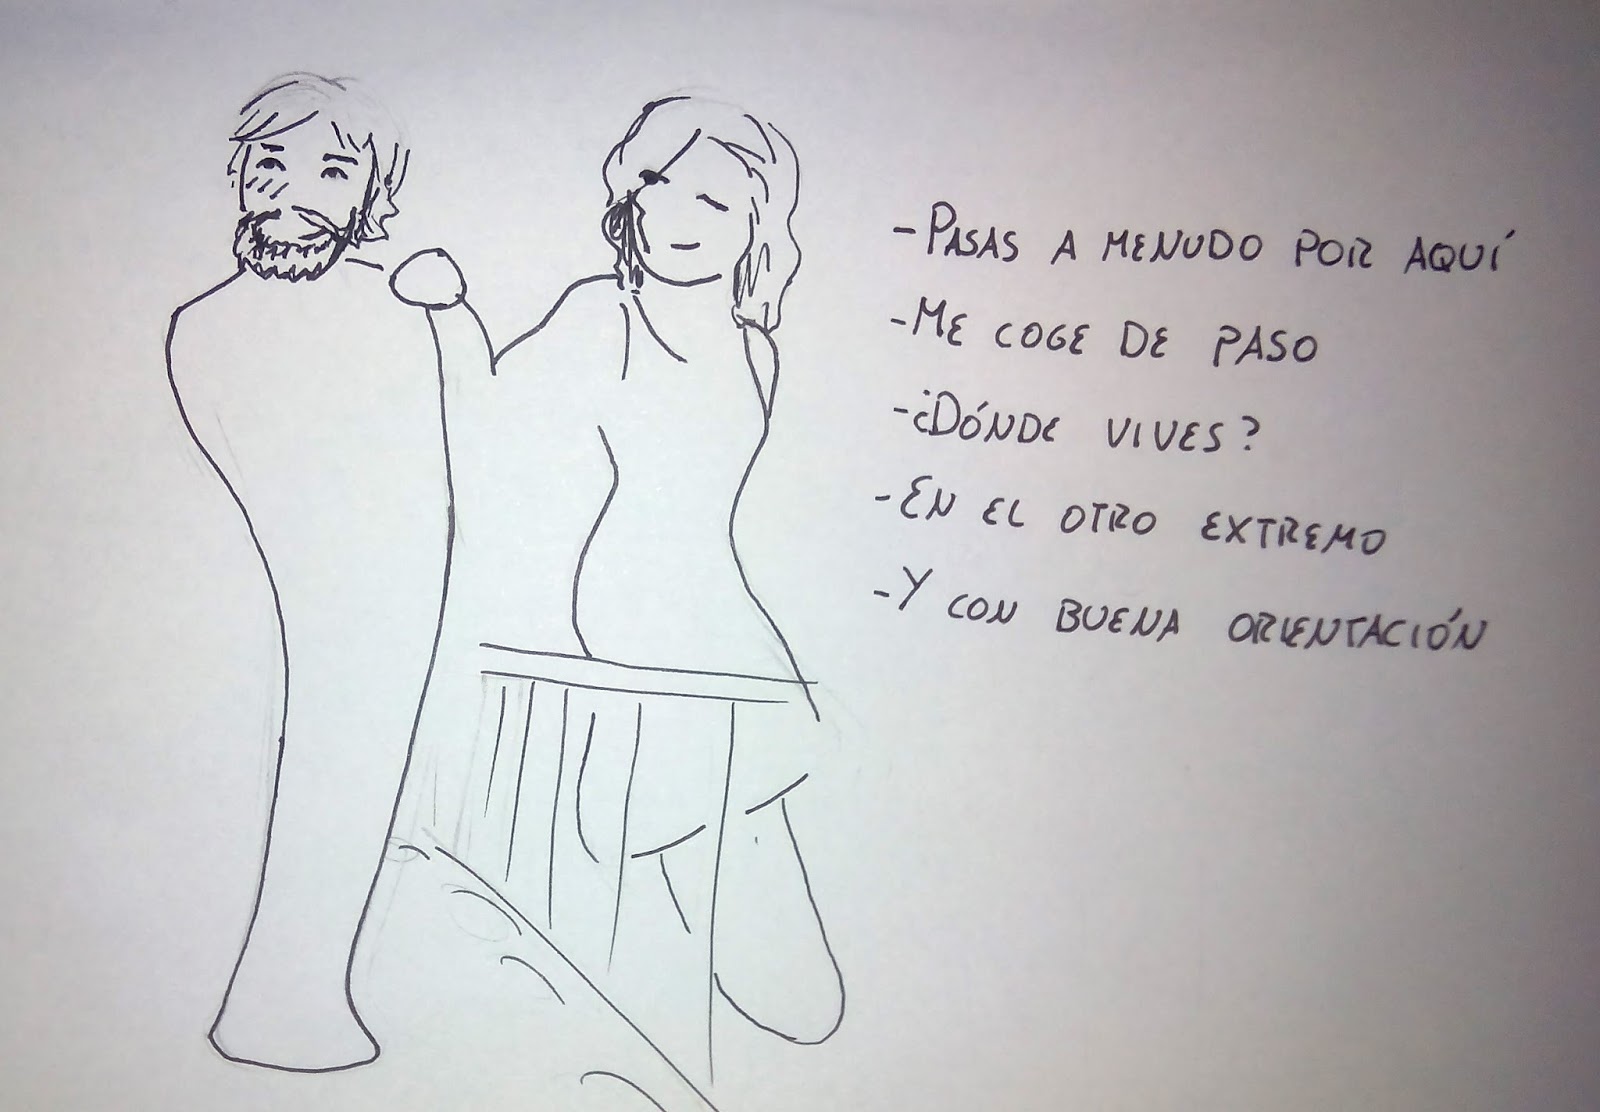 -PASAS A MENUDO POR AQUÍ
-ME COGE DE PASO
-¿DÓNDE VIVES?
-EN EL OTRO EXTREMO
-Y CON BUENA ORIENTACIÓN